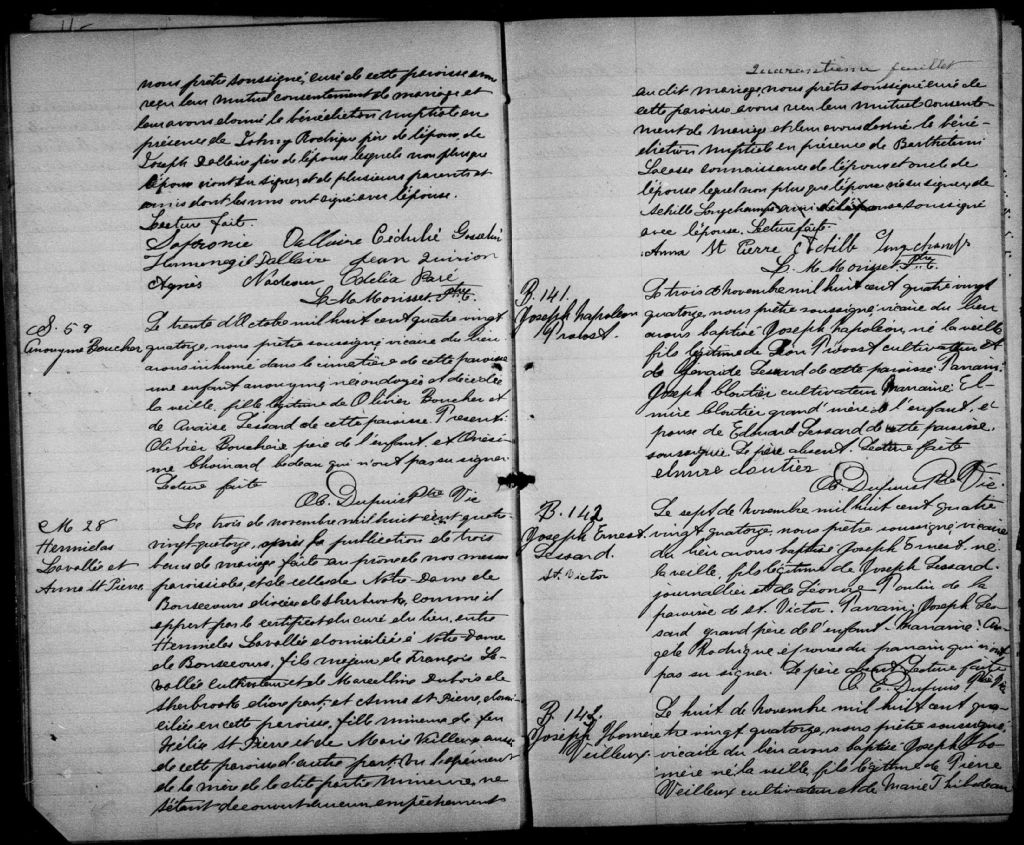 nous prêtre soussigné, curé de cette paroisse avons
reçu leur mutuel consentement de mariage et
leur avons donné la bénédiction nuptiale en
présence de Johny Rodrigue père de l'époux, de
Joseph Dallaire père de l'épouse lesquels non plus que
l'époux n'ont su signer, et de plusieurs parents et
amis dont les uns ont signé avec l'épouse.
Lecture faite.
Sofronie Dallaire Cédulie Gosselin
Hermenegil Dallaire Jean Quirion
Agnès Nadeau Odelia Paré
L. M. Morisset Ptre C.
S. 58
Anonyme Boucher
Le trente d'Octobre mil huit cent quatre vingt
quatorze, nous prêtre soussigné vicaire du lieu
avons inhumé dans le cimetière de cette paroisse
une enfant anonyme, née ondoyée et décédée
la veille, fille légitime de Olivier Boucher et
de Anaïse Lessard de cette paroisse. Présents:
Olivier Boucher père de l'enfant, et Onési-
me Chouinard bedeau qui n'ont pas su signer.
Lecture faite
Ch. Dupuis Ptre Vic
M 28
Hermielas
Lavallée et
Anna St. Pierre
Le trois de novembre mil huit cent quatre
vingt-quatorze, après la publication de trois
bans de mariage faite au prône de nos messes
paroissiales, et de celles de Notre Dame de
Bonsecours diocèse de Sherbrooke, comme il
appert par le certificat du curé du lieu, entre
Hermielas Lavallée domicilié à Notre Dame
de Bonsecours, fils majeur de François La-
vallée cultivateur et de Marcelline Dubois de
Sherbrooke d'une part; et Anna St Pierre, domi-
ciliée en cette paroisse, fille mineure de feu
Hélie St Pierre et de Marie Veilleux aussi
de cette paroisse d'autre part; Vu le
de la mère de la dite partie mineure, ne
s'étant découvert aucun empêchement
Quarantième feuillet
au dit mariage, nous prêtre soussigné curé de
cette paroisse, avons reçu leur mutuel consente-
ment de mariage et leur avons donné la béné-
diction nuptiale en présence de Barthélemi
Lacasse connaissance de l'époux et oncle de
l'épouse lequel non plus que l'époux n'a su signer, de
Achille Longchamps ami de l'épouse soussigné
avec l'épouse. Lecture faite.
Anna St Pierre Achille Longchamps
L. M. Morisset Ptre C.
B. 141.
Joseph Napoléon
Provost.
Le trois de novembre mil huit cent quatre vingt
quatorze, nous prêtre soussigné, vicaire du lieu
avons baptisé Joseph Napoléon, né la veille
fils légitime de Léon Provost cultivateur et
de Lessard de cette paroisse Parrain:
Joseph Cloutier cultivateur Marraine: El-
mire Cloutier grand'mère de l'enfant, é-
pouse de Edouard Lessard de cette paroisse,
soussignée. Le père absent. Lecture faite
elmire cloutier
Ch. Dupuis Ptre Vic.
B. 142
Joseph Ernest
Lessard.
St. Victor
Le sept de novembre mil huit cent quatre
vingt quatorze, nous prêtre soussigné, vicaire
du lieu avons baptisé Joseph Ernest, né
la veille, fils légitime de Joseph Lessard
journallier et de Léonore Poulin de la
paroisse de St. Victor. Parrain; Joseph Les-
sard grand père de l'enfant - Marraine: An-
gèle Rodrigue épouse du parrain qui n'ont
pas su signer. Le père absent Lecture faite
Ch. Dupuis Ptre Vic
B. 143
Joseph Homère
Veilleux
Le huit de novembre mil huit cent qua-
tre vingt quatorze, nous prêtre soussigné,
vicaire du lieu avons baptisé Joseph Ho-
mère né la veille, fils légitime de Pierre
Veilleux cultivateur et de Marie Thibodeau